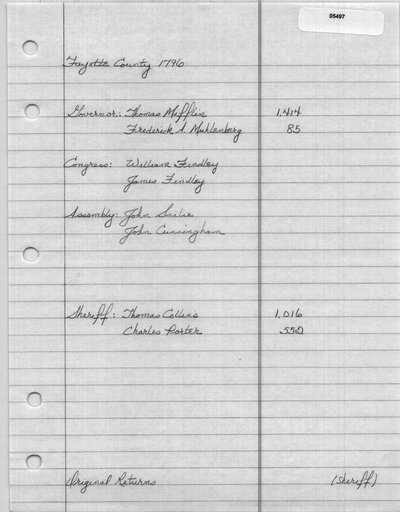 05497
Fayette County 1796
Governor: Thomas Mifflin 1,414
Frederick A. Muhlenberg 85
Congress: William Findley
James Findley
Assembly: John Smilie
John Cunningham
Sheriff: Thomas Collins 1,016
Charles Porter 550
Original Returns (Sheriff)